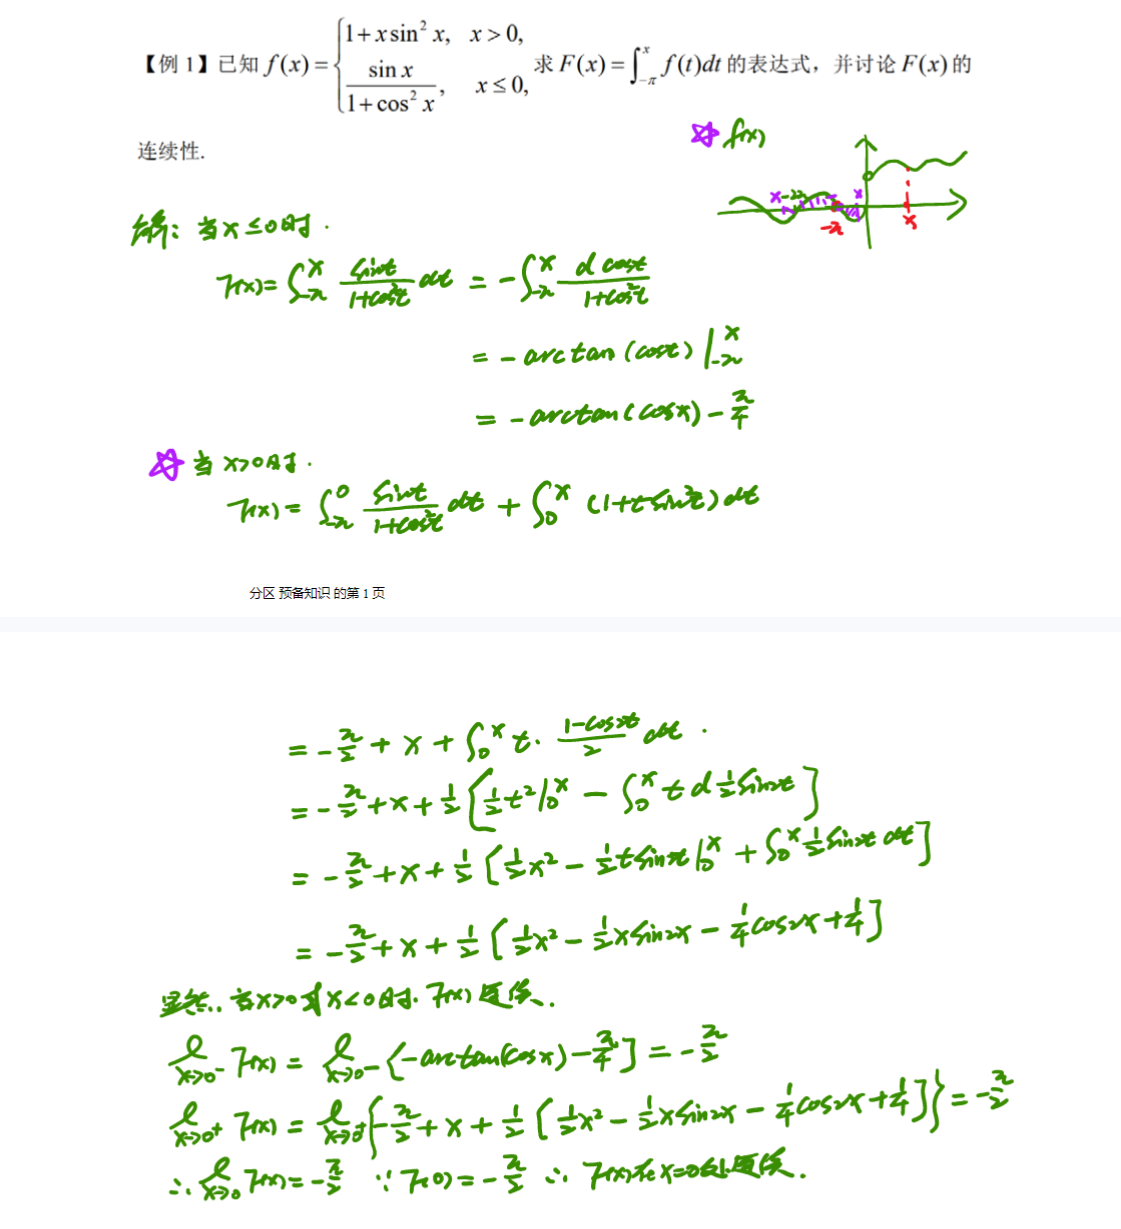 【例1】已知 f(x) = { 1 + x sin² x, x > 0, sin x / (1 + cos² x), x ≤ 0, 求 F(x) = ∫_{-π}^{x} f(t)dt 的表达式，并讨论 F(x) 的
连续性.
☆ f(x)
x -π x
-π x
解：当 x ≤ 0 时.
F(x) = ∫_{-π}^{x} sint / (1+cos²t) dt = -∫_{-π}^{x} d cost / (1+cos²t)
= -arctan(cost) |_{-π}^{x}
= -arctan(cosx) - π/4
☆ 当 x>0 时.
F(x) = ∫_{-π}^{0} sint / (1+cos²t) dt + ∫_{0}^{x} (1+t sin²t) dt
分区 预备知识 的第 1 页
= -π/2 + x + ∫_{0}^{x} t · (1-cos2t)/2 dt.
= -π/2 + x + 1/2 [ 1/2 t² |_{0}^{x} - ∫_{0}^{x} t d 1/2 sin2t ]
= -π/2 + x + 1/2 [ 1/2 x² - 1/2 t sin2t |_{0}^{x} + ∫_{0}^{x} 1/2 sin2t dt ]
= -π/2 + x + 1/2 [ 1/2 x² - 1/2 x sin2x - 1/4 cos2x + 1/4 ]
显然, 当 x>0 或 x<0 时. F(x) 连续.
l_{x→0⁻} F(x) = l_{x→0⁻} [-arctan(cosx) - π/4] = -π/2
l_{x→0⁺} F(x) = l_{x→0⁺} { -π/2 + x + 1/2 [ 1/2 x² - 1/2 x sin2x - 1/4 cos2x + 1/4 ] } = -π/2
∴ l_{x→0} F(x) = -π/2 ∵ F(0) = -π/2 ∴ F(x) 在 x=0 处连续.